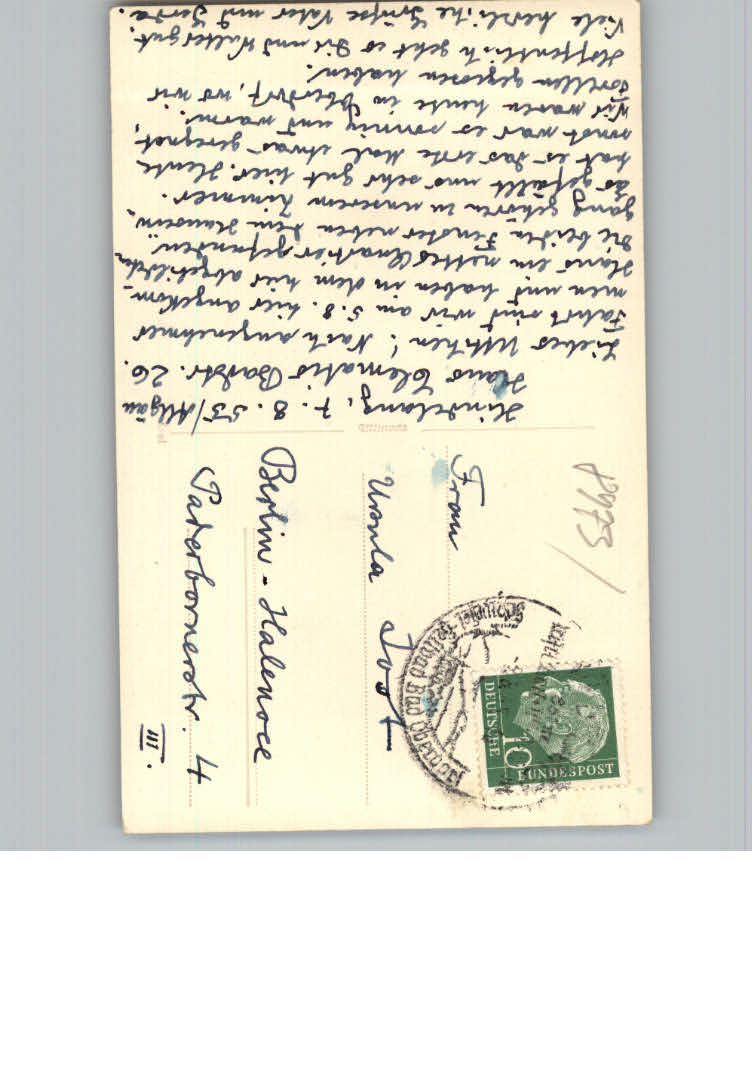 Hindelang, 7. 8. 55/Allgäu
Haus Clematis Badstr. 26.
Liebes Ullchen! Nach angenehmer
Fahrt sind wir am 5.8. hier angekom-
men und haben in dem hier abgebildeten
Haus ein nettes Quartier gefunden.
Die beiden Fenster neben dem Hausein-
gang gehören zu unserem Zimmer.
Es gefällt uns sehr gut hier. Heute
hat es das erste Mal etwas geregnet,
sonst war es sonnig und warm.
Wir waren heute in Oberdorf, wo wir
Forellen gegessen haben.
Hoffentlich geht es Dir und Walter gut.
Viele herzliche Grüße Vater und Gerda.
Frau
Ursula Jost
Berlin-Halensee
Paderbornerstr. 4
III.
8973/
DEUTSCHE
BUNDESPOST
10
Bad Oberdorf